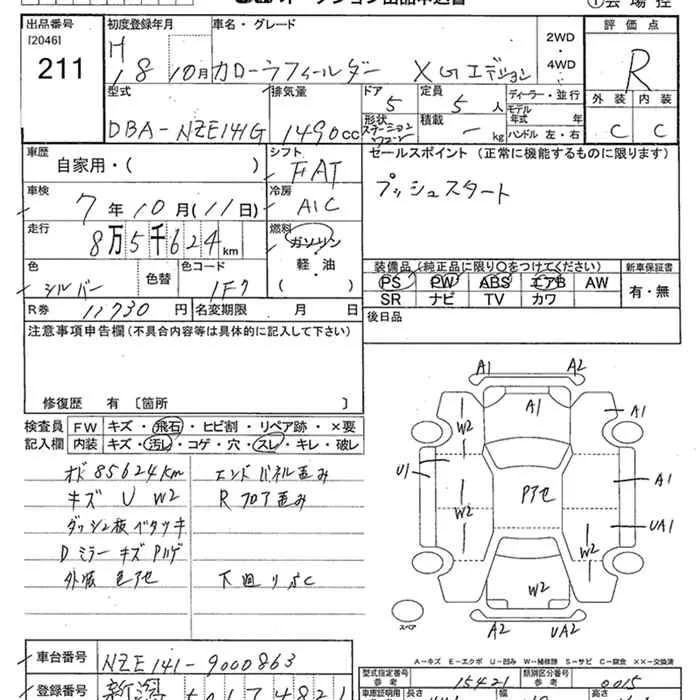 出品番号
[2046]
211
初度登録年月
H18 10月
車名・グレード
カローラフィールダー XGエディション
2WD
・
4WD
評価点
R
外装 内装
C C
型式
DBA-NZE141G
排気量
1490cc
ドア
5
形状
ステーションワゴン
定員
5人
積載
- kg
ディーラー・並行
モデル
年式 年
ハンドル 左・右
車歴
自家用・( )
シフト
FAT
セールスポイント (正常に機能するものに限ります)
プッシュスタート
車検
7年10月(11日)
冷房
AIC
走行
8万5千624km
燃料
ガソリン
軽・油
( )
色
シルバー
色替
色コード
1F7
装備品(純正品に限り○をつけてください)
新車保証書
PS PW ABS エアB AW
有・無
SR ナビ TV カワ
R券 11730円
名変期限 月 日
後日品
注意事項申告欄(不具合内容等は具体的に記入して下さい)
修復歴 有 〔箇所
検査員
記入欄
FW キズ・飛石・ヒビ割・リペア跡・×要
内装 キズ・汚レ・コゲ・穴・スレ・キレ・破レ
オド85624km
キズ U W2
ダッシュ板ベタツキ
Dミラーキズ Pハゲ
外装 色アセ
エンドパネル歪み
Rフロア歪み
下廻りサビC
A1 A2
A1
W2
A1
U1
Pアセ
A1
W2
UA1
W2
W2
A2 UA2
スペア
A-キズ E-エクボ U-凹み W-補修跡 S-サビ C-腐食 ××-交換済
車台番号
NZE141-9000863
型式指定番号
参考
15421
類別区分番号
参考
0015
登録番号
新潟
車庫証明用
長さ
高さ